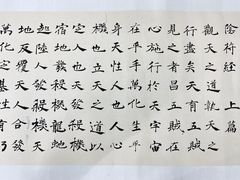 陰符經 上篇
觀天之道執天之
行盡矣天有五賊
見之者昌五賊在
心施行於天宇宙
在乎手萬化生乎
身天性人也人心
機也立天之道以
定人也天發殺機
宿地發殺機龍
起陸人發殺機天
地反覆天人合發
萬化定基性有巧